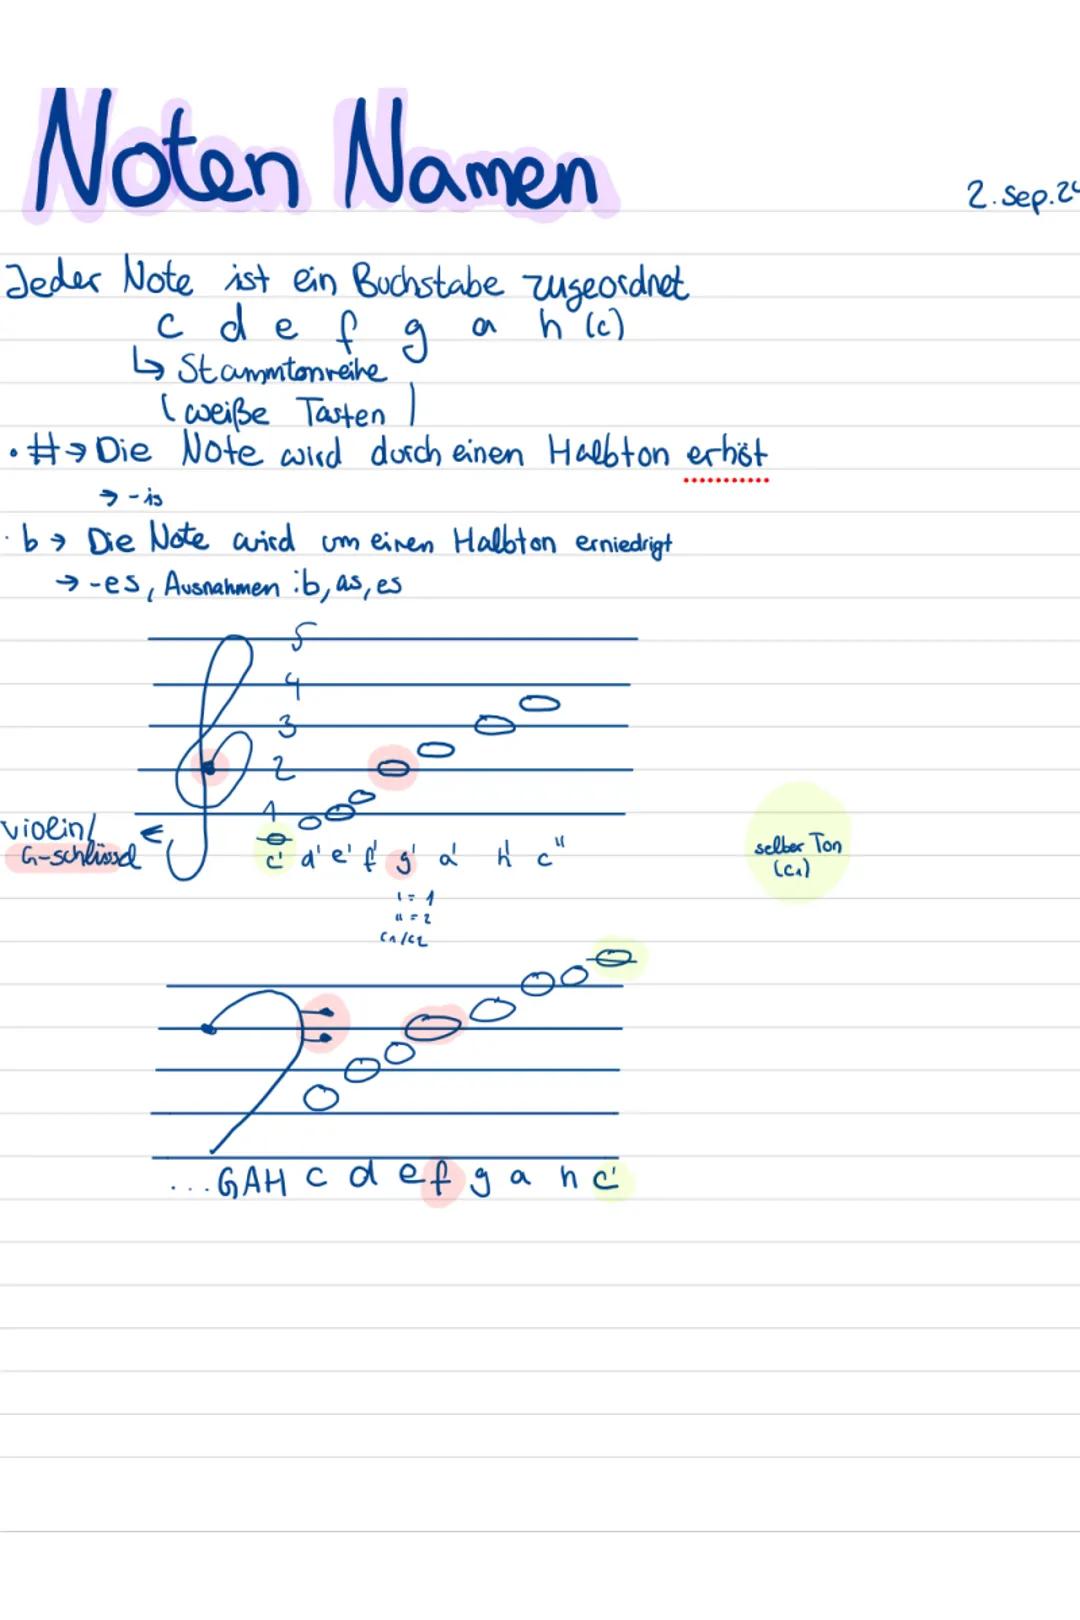 Noten Namen
2. Sep. 24
Jeder Note ist ein Buchstabe zugeordnet
c d e f g a h (c)
↳ Stammtonreihe
(weiße Tasten)
· # → Die Note wird durch einen Halbton erhöt
→ -is
· b → Die Note wird um einen Halbton erniedrigt
→ -es, Ausnahmen: b, as, es
5
4
3
2
1
violin/
G-schlüssel
c' d' e' f' g' a' h' c''
selber Ton
(c1)
' = 1
'' = 2
c1/c2
...GAH c d e f g a h c'